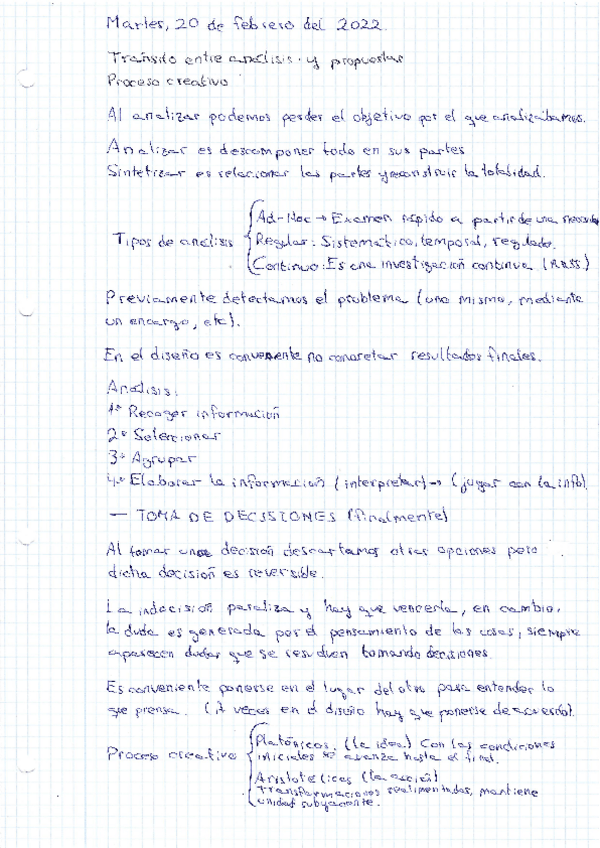 Martes, 20 de febrero del 2022.
Tránsito entre análisis y propuestas
Proceso creativo
Al analizar podemos perder el objetivo por el que analizábamos.
Analizar es descomponer todo en sus partes
Sintetizar es relacionar las partes y reconstruir la totalidad.
Tipos de análisis
Ad-Hoc → Examen rápido a partir de una
Regular: Sistemático, temporal, regulado.
Continuo: Es una investigación continua (RRSS)
Previamente detectamos el problema (uno mismo, mediante
un encargo, etc).
En el diseño es conveniente no concretar resultados finales.
Análisis:
1º Recoger información
2º Seleccionar
3º Agrupar
4º Elaborar la información (interpretar) → (jugar con la info).
— TOMA DE DECISIONES (finalmente)
Al tomar una decisión descartamos otras opciones pero
dicha decisión es reversible.
La indecisión paraliza y hay que vencerla, en cambio,
la duda es generada por el pensamiento de las cosas, siempre
aparecen dudas que se resuelven tomando decisiones.
Es conveniente ponerse en el lugar del otro para entender lo
que piensa. (A veces en el diseño hay que ponerse de acuerdo).
Proceso creativo
Platónicos. (la idea) Con las condiciones
iniciales se avanza hasta el final.
Aristotélicos (la acción)
Transformaciones realimentadas, mantiene
unidad subyacente.